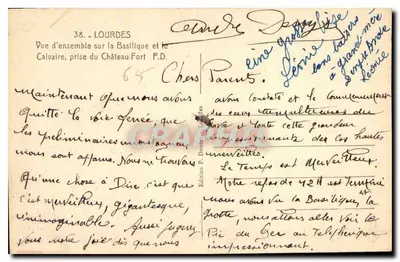 38. - LOURDES
Vue d'ensemble sur la Basilique et le
Calvaire, prise du Château-Fort P.D.
André
une grosse bise
Léonie
bons baisers
à grand-mère
Léonie
65
Chers Parents.
Maintenant que nous avons
quitté la voie ferrée, que
les préliminaires
nous sont apparus. Nous ne trouvons
qu'une chose à Dire, c'est que
c'est merveilleux, gigantesque,
inimaginable. Aussi jugez
vous notre joie dès que nous
avons constaté et le commencement
des cures
et toute cette grandeur
impressionnante des ces hautes
merveilles.
Le Temps est Merveilleux.
Notre repas de 12H est terminé
nous avons vu la Basilique, la
grotte, nous allons aller voir le
Pic du Ger au Téléphérique
impressionnant.
Edition